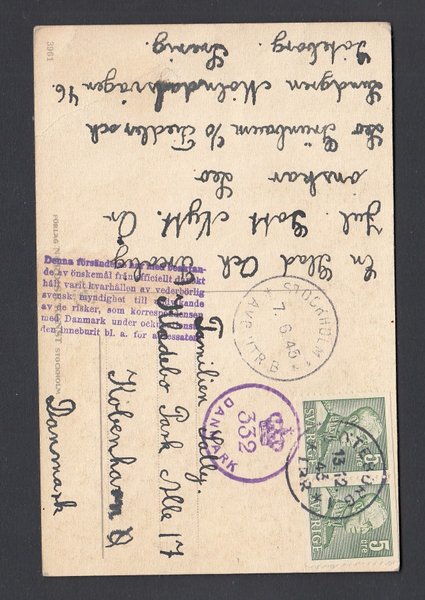 En Glad Och trevlig
Jul. Gott Nytt. År
önskar Leo.
Leo Grünbaum c/o Fiedler och
Lundgren Mölndalsvägen 46.
Göteborg.
Sverig.
3961
STOCKHOLM
Denna försändelse har med beaktan-
de av önskemål från officiellt danskt
håll varit kvarhållen av vederbörlig
svensk myndighet till
av de risker, som korrespondensen
med Danmark under ockupationen
den inneburit bl. a. för adressaten
STOCKHOLM
7. 6. 45
AVG. UTR. B
DANMARK
332
GÖTEBORG
13 12
43
SVERIGE
5 ÖRE
SVERIGE
5 ÖRE
Familien
Hladebo Park Alle 17
København
Danmark